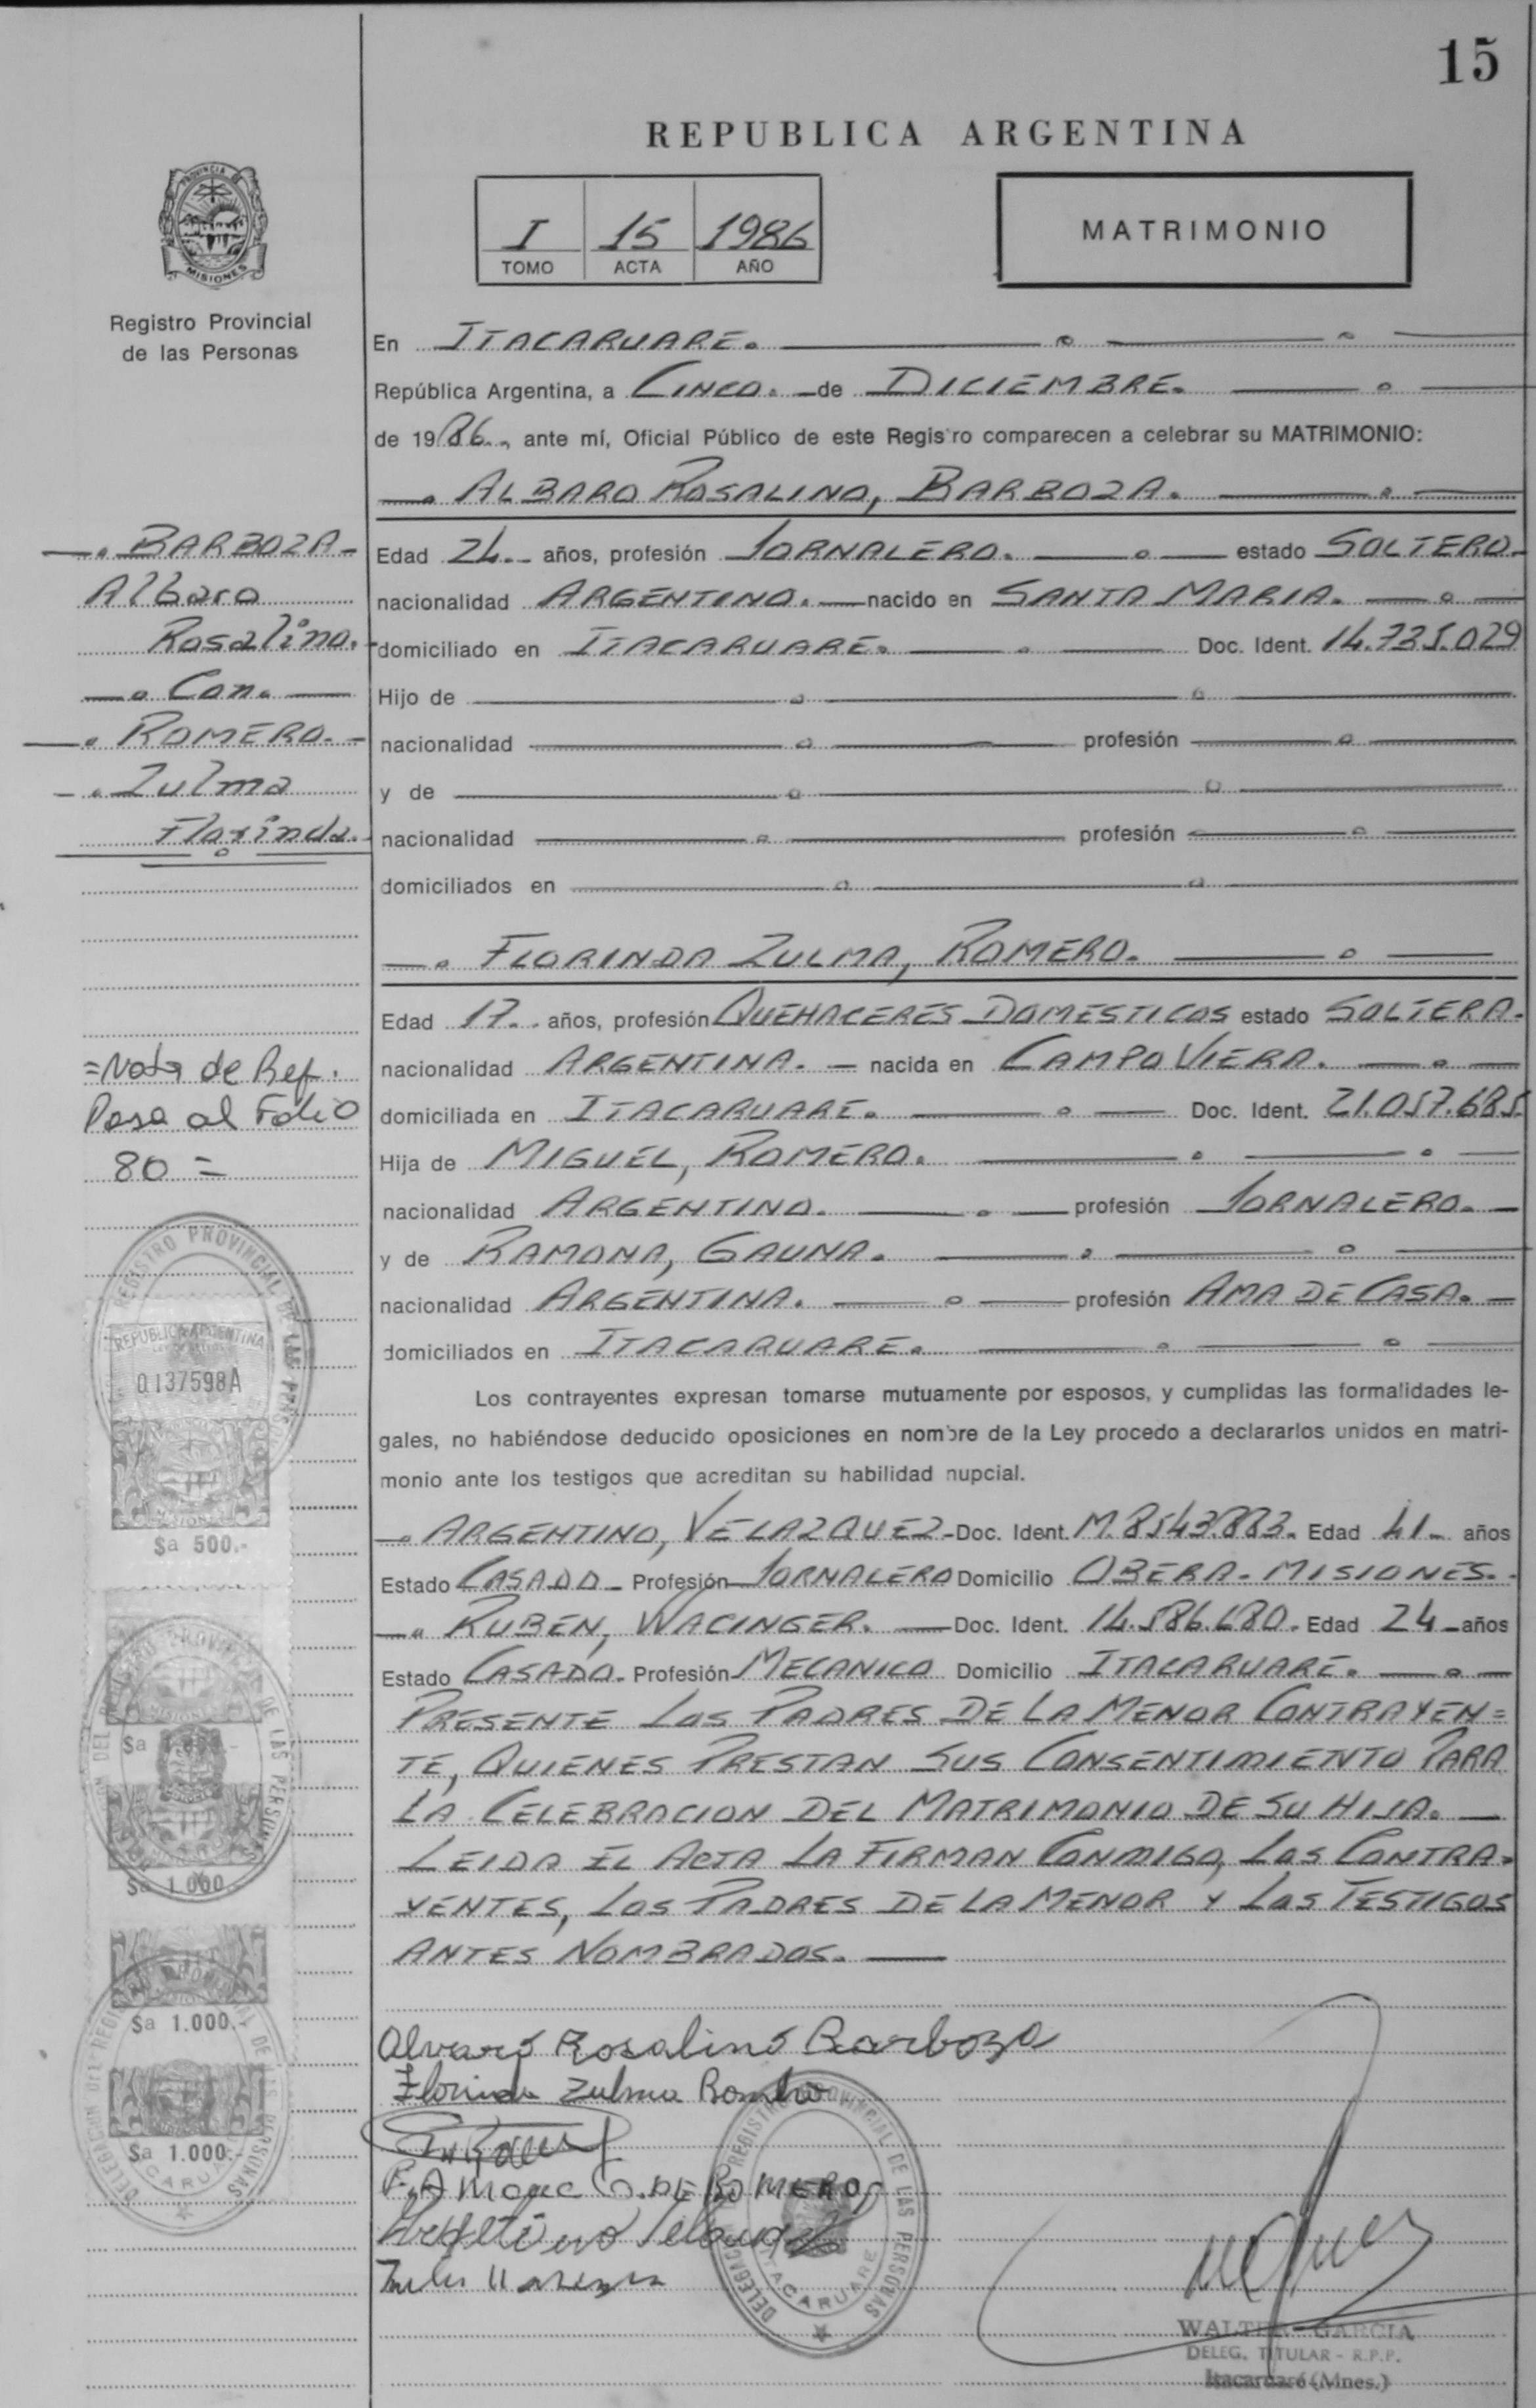 15
REPUBLICA ARGENTINA
I 15 1986
TOMO ACTA AÑO
MATRIMONIO
PROVINCIA DE
MISIONES
Registro Provincial
de las Personas
En ITACARUARE.
República Argentina, a CINCO. de DICIEMBRE.
de 1986., ante mí, Oficial Público de este Registro comparecen a celebrar su MATRIMONIO:
ALBARO ROSALINO, BARBOZA.
BARBOZA
Albaro
Rosalino.
Con.
ROMERO.
Zulma
Florinda.
Edad 24 años, profesión JORNALERO. estado SOLTERO.
nacionalidad ARGENTINO. nacido en SANTA MARIA.
domiciliado en ITACARUARE. Doc. Ident. 14.735.029
Hijo de
nacionalidad profesión
y de
nacionalidad profesión
domiciliados en
FLORINDA ZULMA, ROMERO.
Edad 17 años, profesión QUEHACERES DOMESTICOS estado SOLTERA.
nacionalidad ARGENTINA. nacida en CAMPO VIERA.
domiciliada en ITACARUARE. Doc. Ident. 21.057.685
Hija de MIGUEL, ROMERO.
nacionalidad ARGENTINO. profesión JORNALERO.
y de RAMONA, GAUNA.
nacionalidad ARGENTINA. profesión AMA DE CASA.
domiciliados en ITACARUARE.
=Nota de Ref.
Pasa al Folio
80=
REGISTRO PROVINCIAL DE LAS PERSONAS
REPUBLICA ARGENTINA
0137598A
MISIONES
$a 500.-
$a 1.000.-
$a 1.000.-
$a 1.000.-
$a 1.000.-
Los contrayentes expresan tomarse mutuamente por esposos, y cumplidas las formalidades le-
gales, no habiéndose deducido oposiciones en nombre de la Ley procedo a declararlos unidos en matri-
monio ante los testigos que acreditan su habilidad nupcial.
ARGENTINO, VELAZQUEZ-Doc. Ident. M.8543.883. Edad 41 años
Estado CASADO Profesión JORNALERO Domicilio OBERA - MISIONES.
RUBEN, WACINGER. Doc. Ident. 14.586.680. Edad 24 años
Estado CASADO. Profesión MECANICO Domicilio ITACARUARE.
PRESENTE LOS PADRES DE LA MENOR CONTRAYEN=
TE, QUIENES PRESTAN SUS CONSENTIMIENTO PARA
LA CELEBRACION DEL MATRIMONIO DE SU HIJA.
LEIDA EL ACTA LA FIRMAN CONMIGO, LOS CONTRA-
YENTES, LOS PADRES DE LA MENOR Y LOS TESTIGOS
ANTES NOMBRADOS.
Alvaro Rosalino Barboza
Florinda Zulma Romero
RAMONA G. DE ROMERO
DELEGACION DEL REGISTRO PROVINCIAL DE LAS PERSONAS
ITACARUARE
WALTER GARCIA
DELEG. TITULAR - R.P.P.
Itacaruaré (Mnes.)